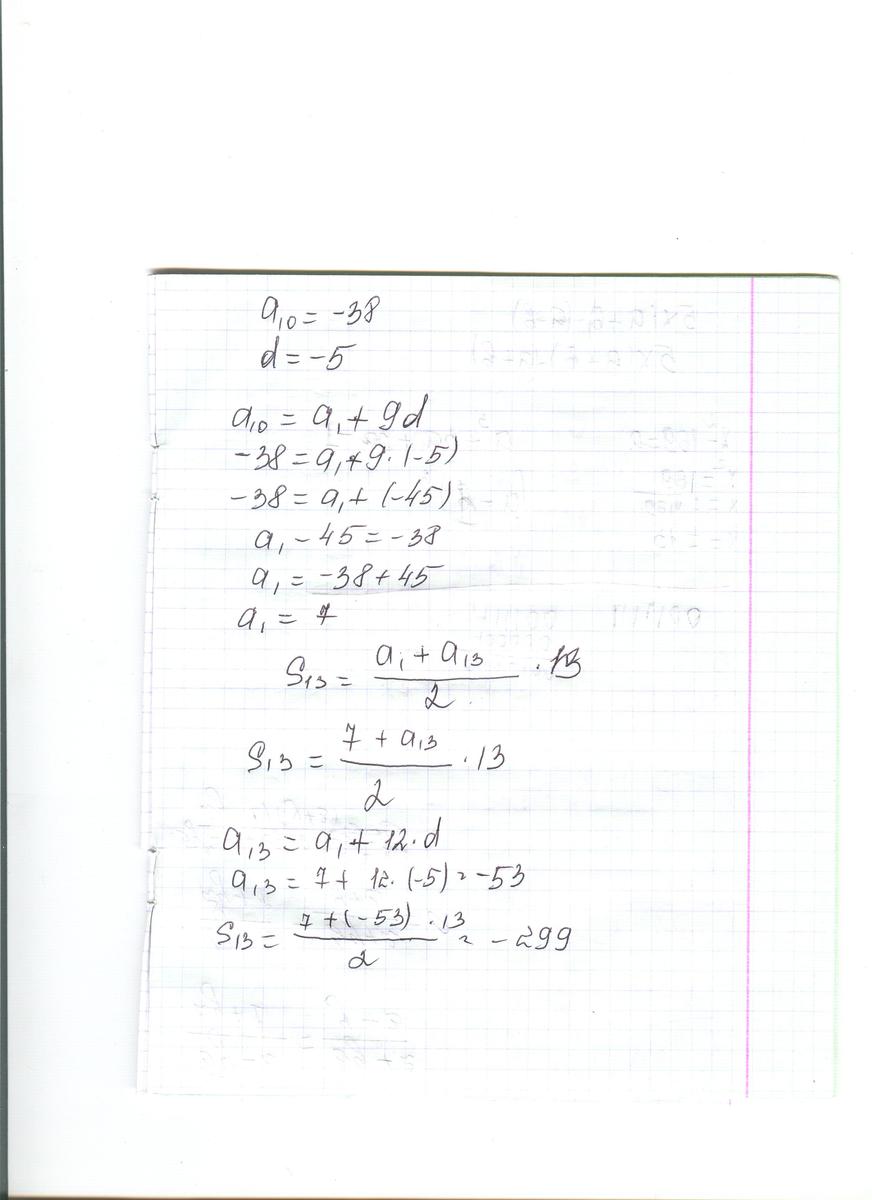 a₁₀ = -38
d = -5
a₁₀ = a₁ + 9d
-38 = a₁ + 9 · (-5)
-38 = a₁ + (-45)
a₁ - 45 = -38
a₁ = -38 + 45
a₁ = 7
S₁₃ = (a₁ + a₁₃)/2 · 13
S₁₃ = (7 + a₁₃)/2 · 13
a₁₃ = a₁ + 12 · d
a₁₃ = 7 + 12 · (-5) = -53
S₁₃ = (7 + (-53) · 13)/2 = -299